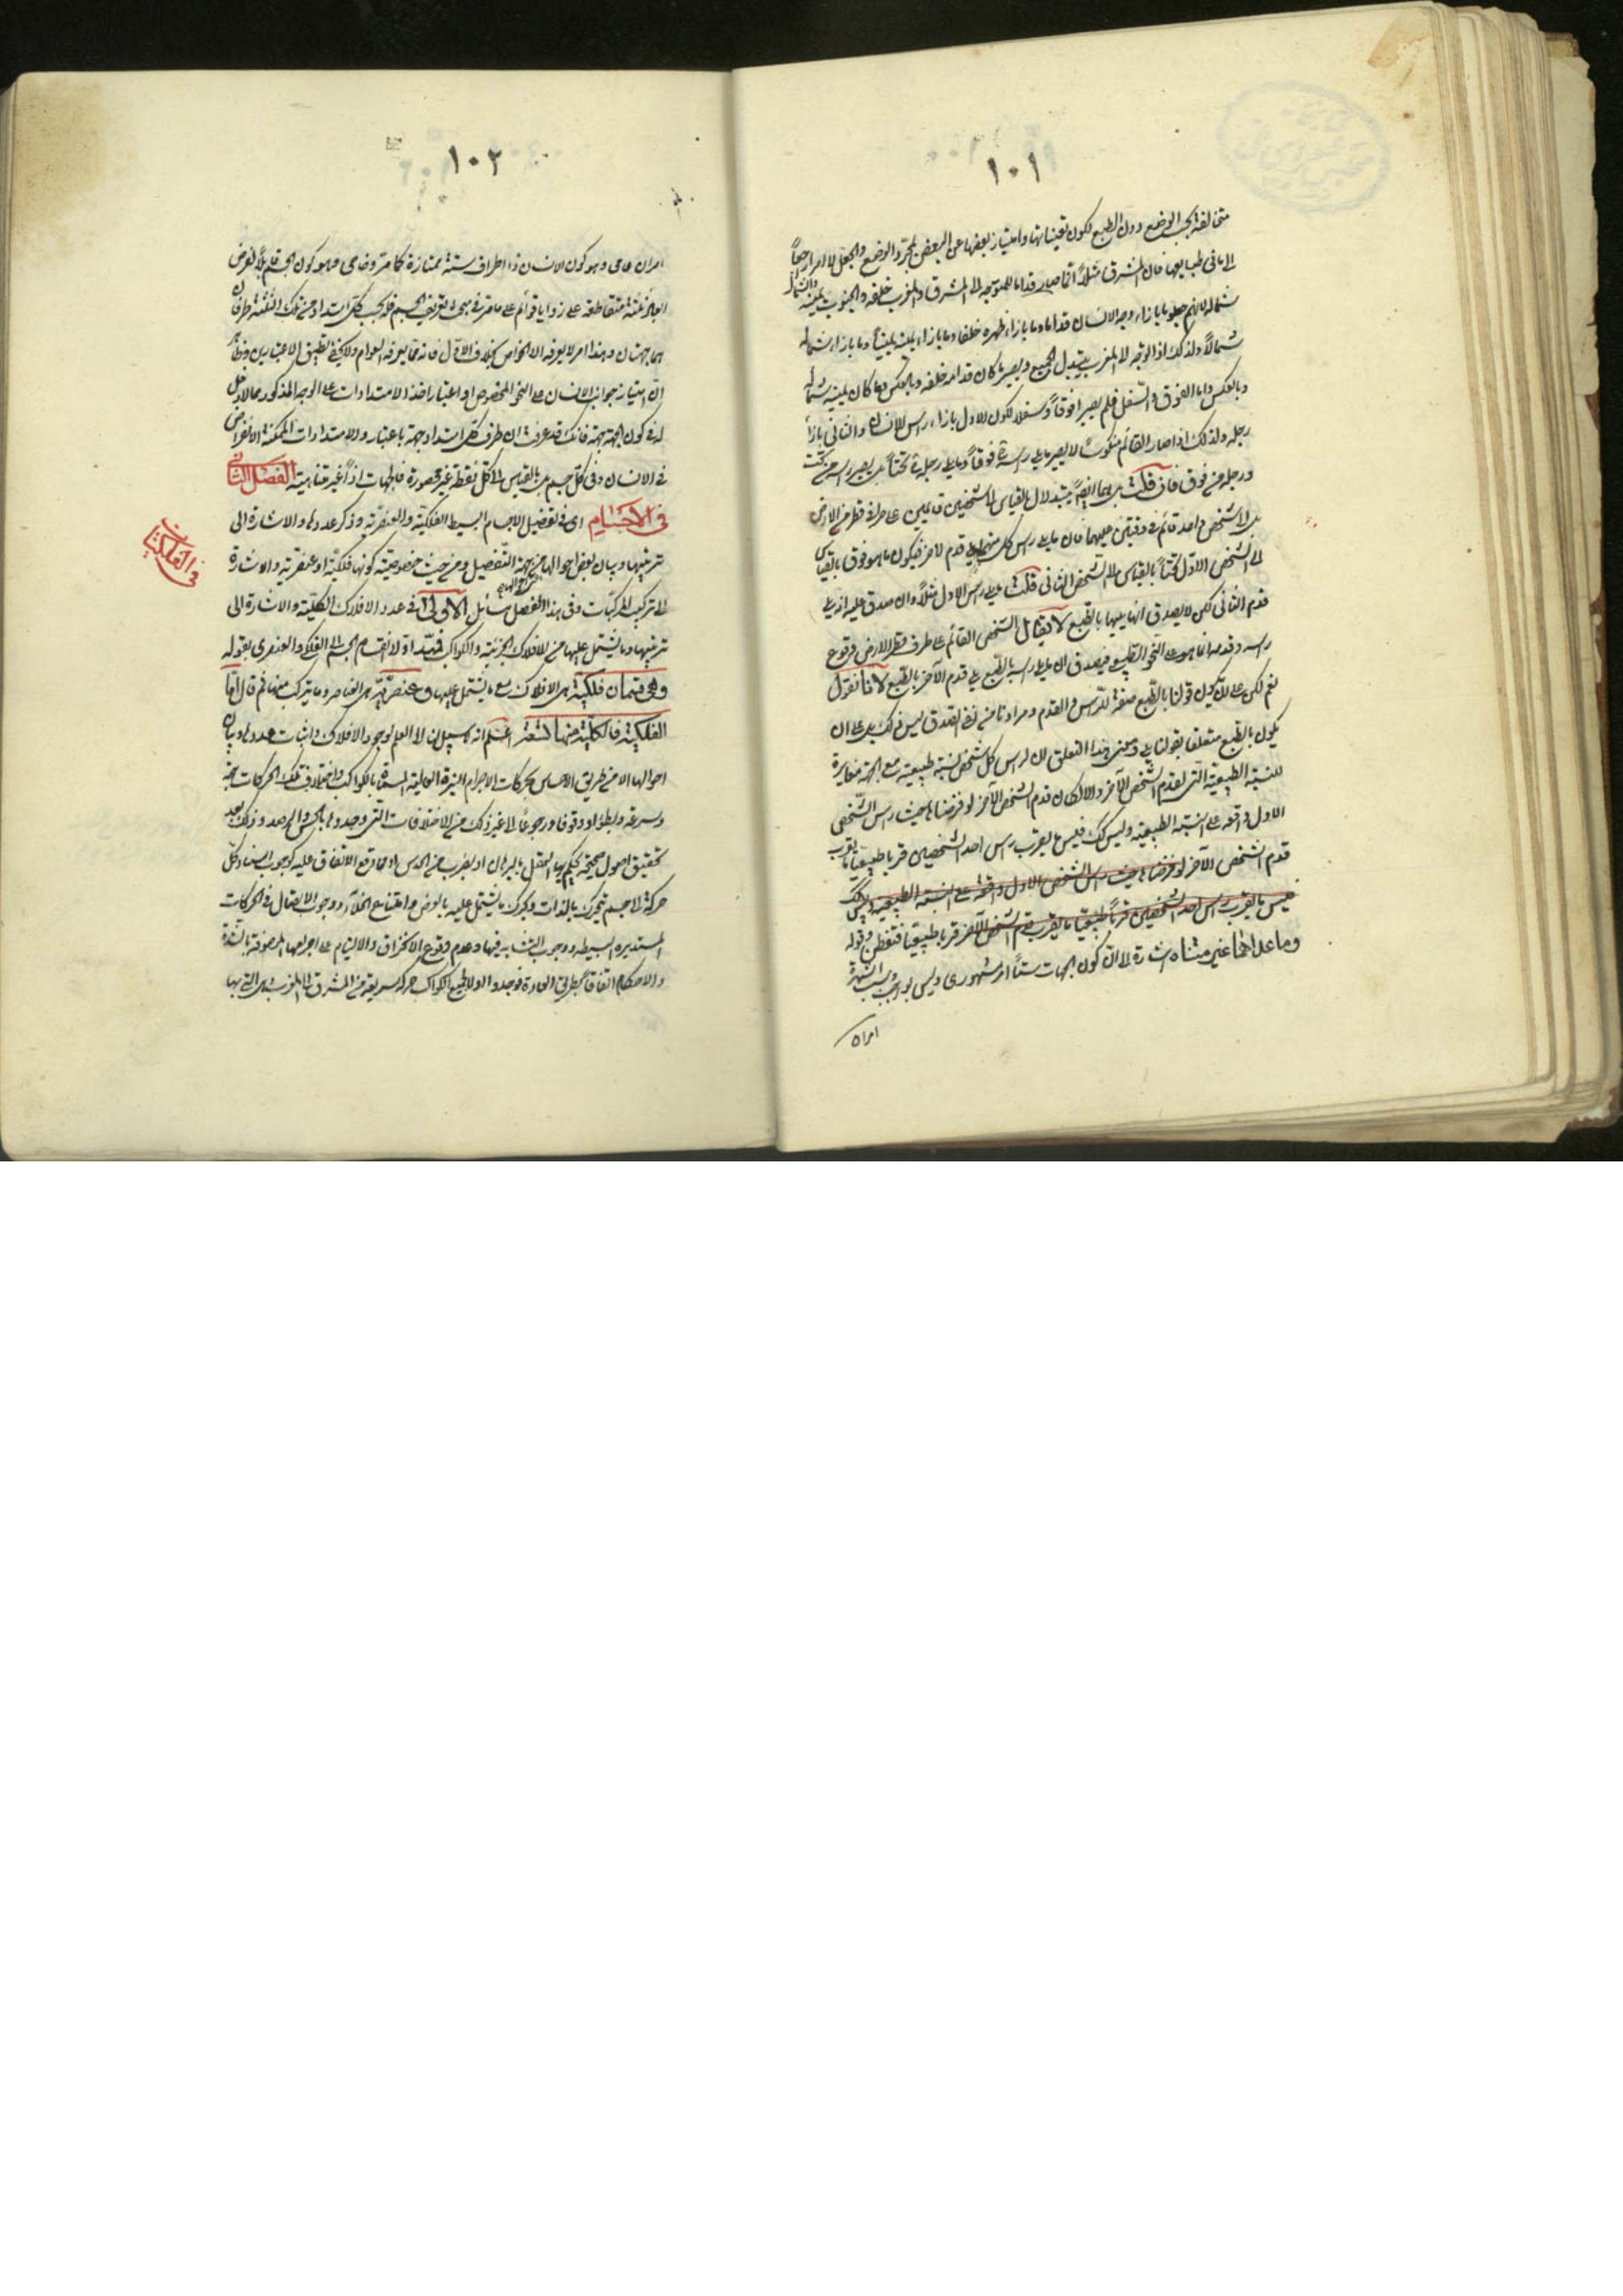 ١٠١
متخالفة بحسب الوضع دون الطبع لكون تعيناتها وامتياز بعضها عن البعض بمجرد الوضع والجعل لا لامر راجعاً
الى مافى طبايعها فان المشرق مثلاً انما صار قداما للمتوجه الى المشرق والمغرب خلفه والجنوب يمينه والشمال
شماله لانهم جعلوا ما بازاء وجه الانسان قداما وما بازاء ظهره خلفا وما بازاء يمينه يميناً وما بازاء شماله
شمالاً ولذلك اذا توجه الى المغرب يتبدل الجميع ويصير ما كان قدامه خلفه وبالعكس وما كان يمينه شماله
وبالعكس واما الفوق والسفل فلم يصيرا فوقاً وسفلا لكون الاول بازاء راس الانسان والثانى بازاء
رجله ولذلك اذا صار القائم منكوساً لا يصير ما يلى راسه فوقاً وما يلى رجليه تحتاً بل يصير راسه من تحت
ورجله من فوق فان قلت بل هما ايضاً يتبدلان بالقياس الى شخصين قائمين على طرفى قطر من الارض
بل الى شخص واحد قائم فى وقتين عليهما فان ما يلى راس كل منهما يلى قدم الاخر فيكون ما هو فوق بالقياس
الى الشخص الاول تحتاً بالقياس الى الشخص الثانى قلت ما يلى راس الاول مثلاً وان صدق عليه انه يلى
قدم الثانى لكن لا يصدق انه يليها بالطبع لا يقال الشخص القائم على طرف قطر الارض وقوع
راسه وقدمه انما هو على النحو الطبيعى فيصدق ان ما يلى راسه بالطبع يلى قدم الآخر بالطبع لانا نقول
نعم لكن على ان يكون قولنا بالطبع صفة للراس والقدم ومرادنا من نفى الصدق ليس ذلك بل على ان
يكون بالطبع متعلقا بقولنا يلى ومعنى هذا التعلق ان لراس كل شخص نسبة طبيعية مع الجهة مغايرة
للنسبة الطبيعية التى لقدم الشخص الآخر والا لكان قدم الشخص الآخر لو فرضناها حيث راس الشخص
الاول واقعة على النسبة الطبيعية وليس كك فليس ما يقرب راس احد الشخصين قربا طبيعيا ما يقرب
قدم الشخص الآخر لو فرضناها حيث راس الشخص الاول واقعة على النسبة الطبيعية وليس كك
فليس ما يقرب راس احد الشخصين قرباً طبيعيا ما يقرب قدم الشخص الآخر قربا طبيعيا فتفطن وقوله
وما عداهما غير متناه اشارة الى ان كون الجهات ستاً امر مشهورى وليس بواجب وسبب الشهرة
امران
١٠٢
امران عامى وهو كون الانسان ذا اطراف ستة ممتازة كما مر وخاصى وهو كون الجسم قابلاً لفرض
ابعاد ثلثة متقاطعة على زوايا قوائم على ما مر فى بحث تعريف الجسم فبحسب كل امتداد من تلك الثلثة طرفان
هما جهتان وهذا امر لا يعرفه الا الخواص بخلاف الاول فانه مما يعرفه العوام ولا يخفى تطبيق الاعتبارين وظاهر
ان امتياز جوانب الانسان على النحو المخصوص او اعتبار اخذ الامتدادات على الوجه المذكور مما لا دخل
له فى كون الجهة جهة فانك قد عرفت ان طرف كل امتداد جهة باعتبار والامتدادات الممكنة الانفراض
فى الانسان وفى كل جسم بل بالقياس الى كل نقطة غير محصورة فالجهات اذاً غير متناهية الفصل الثانى
فى الاجسام اى فى تفصيل الاجسام البسيطة الفلكية والعنصرية وذكر عددها والاشارة الى
ترتيبها وبيان بعض احوالها من جهة التفصيل ومن حيث خصوصية كونها فلكية او عنصرية والاشارة
الى تركيب المركبات وفى هذا الفصل مسائل الاولى فى عدد الافلاك الكلية والاشارة الى
ترتيبها وما يشتمل عليها من الافلاك الجزئية والكواكب فبدأ اولا بانقسام الجسم الى الفلكى والعنصرى بقوله
وهى قسمان فلكية هى الافلاك مع ما يشتمل عليها وعنصرية هى العناصر وما يتركب منها ثم قال اما
الفلكية فالكلية منها تسعة اعلم انه لا سبيل لنا الى العلم بوجود الافلاك واثبات عددها وبيان
احوالها الا من طريق الاحساس بحركات الاجرام النيرة العالية المسماة بالكواكب واختلاف تلك الحركات جهة
وسرعة وبطؤا ووقوفا ورجوعا الى غير ذلك من الاختلافات التى وجدوها بالحس والرصد وذلك بعد
تحقيق اصول صحيحة يحكم بها العقل بالبرهان او بضرب من الحدس او مما وقع الاتفاق عليه كوجوب استناد كل
حركة الى جسم يتحرك بالذات ويحرك ما يشتمل عليه بالعرض وامتناع الخلاء ووجوب الاتصال فى الحركات
المستديرة البسيطة ووجوب التشابه فيها وعدم وقوع الانخراق والالتيام على اجرامها الموصوفة بالشدة
والاحكام اتفاقاً بطريق العادة فوجدوا اولا لجميع الكواكب حركة سريعة من المشرق الى المغرب وهى التى بها
فى الفلكيات